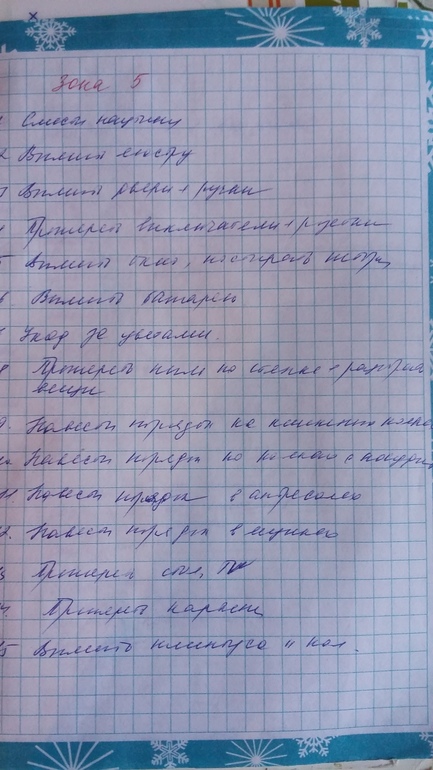 Зона 5
1 Смести паутину
2 Вымыть люстру
3 Вымыть двери + ручки
4 Протереть выключатели + розетки
5 Вымыть окно, постирать
6 Вымыть батарею
7 Уход за цветами.
8 Протереть пыль на стенке +
вещи
9. Навести порядок на книжных
10. Навести порядок по
11. Навести порядок в антресолях
12. Навести порядок в ящиках
13 Протереть стол,
14. Протереть карнизы
15 Вымыть плинтуса и пол.